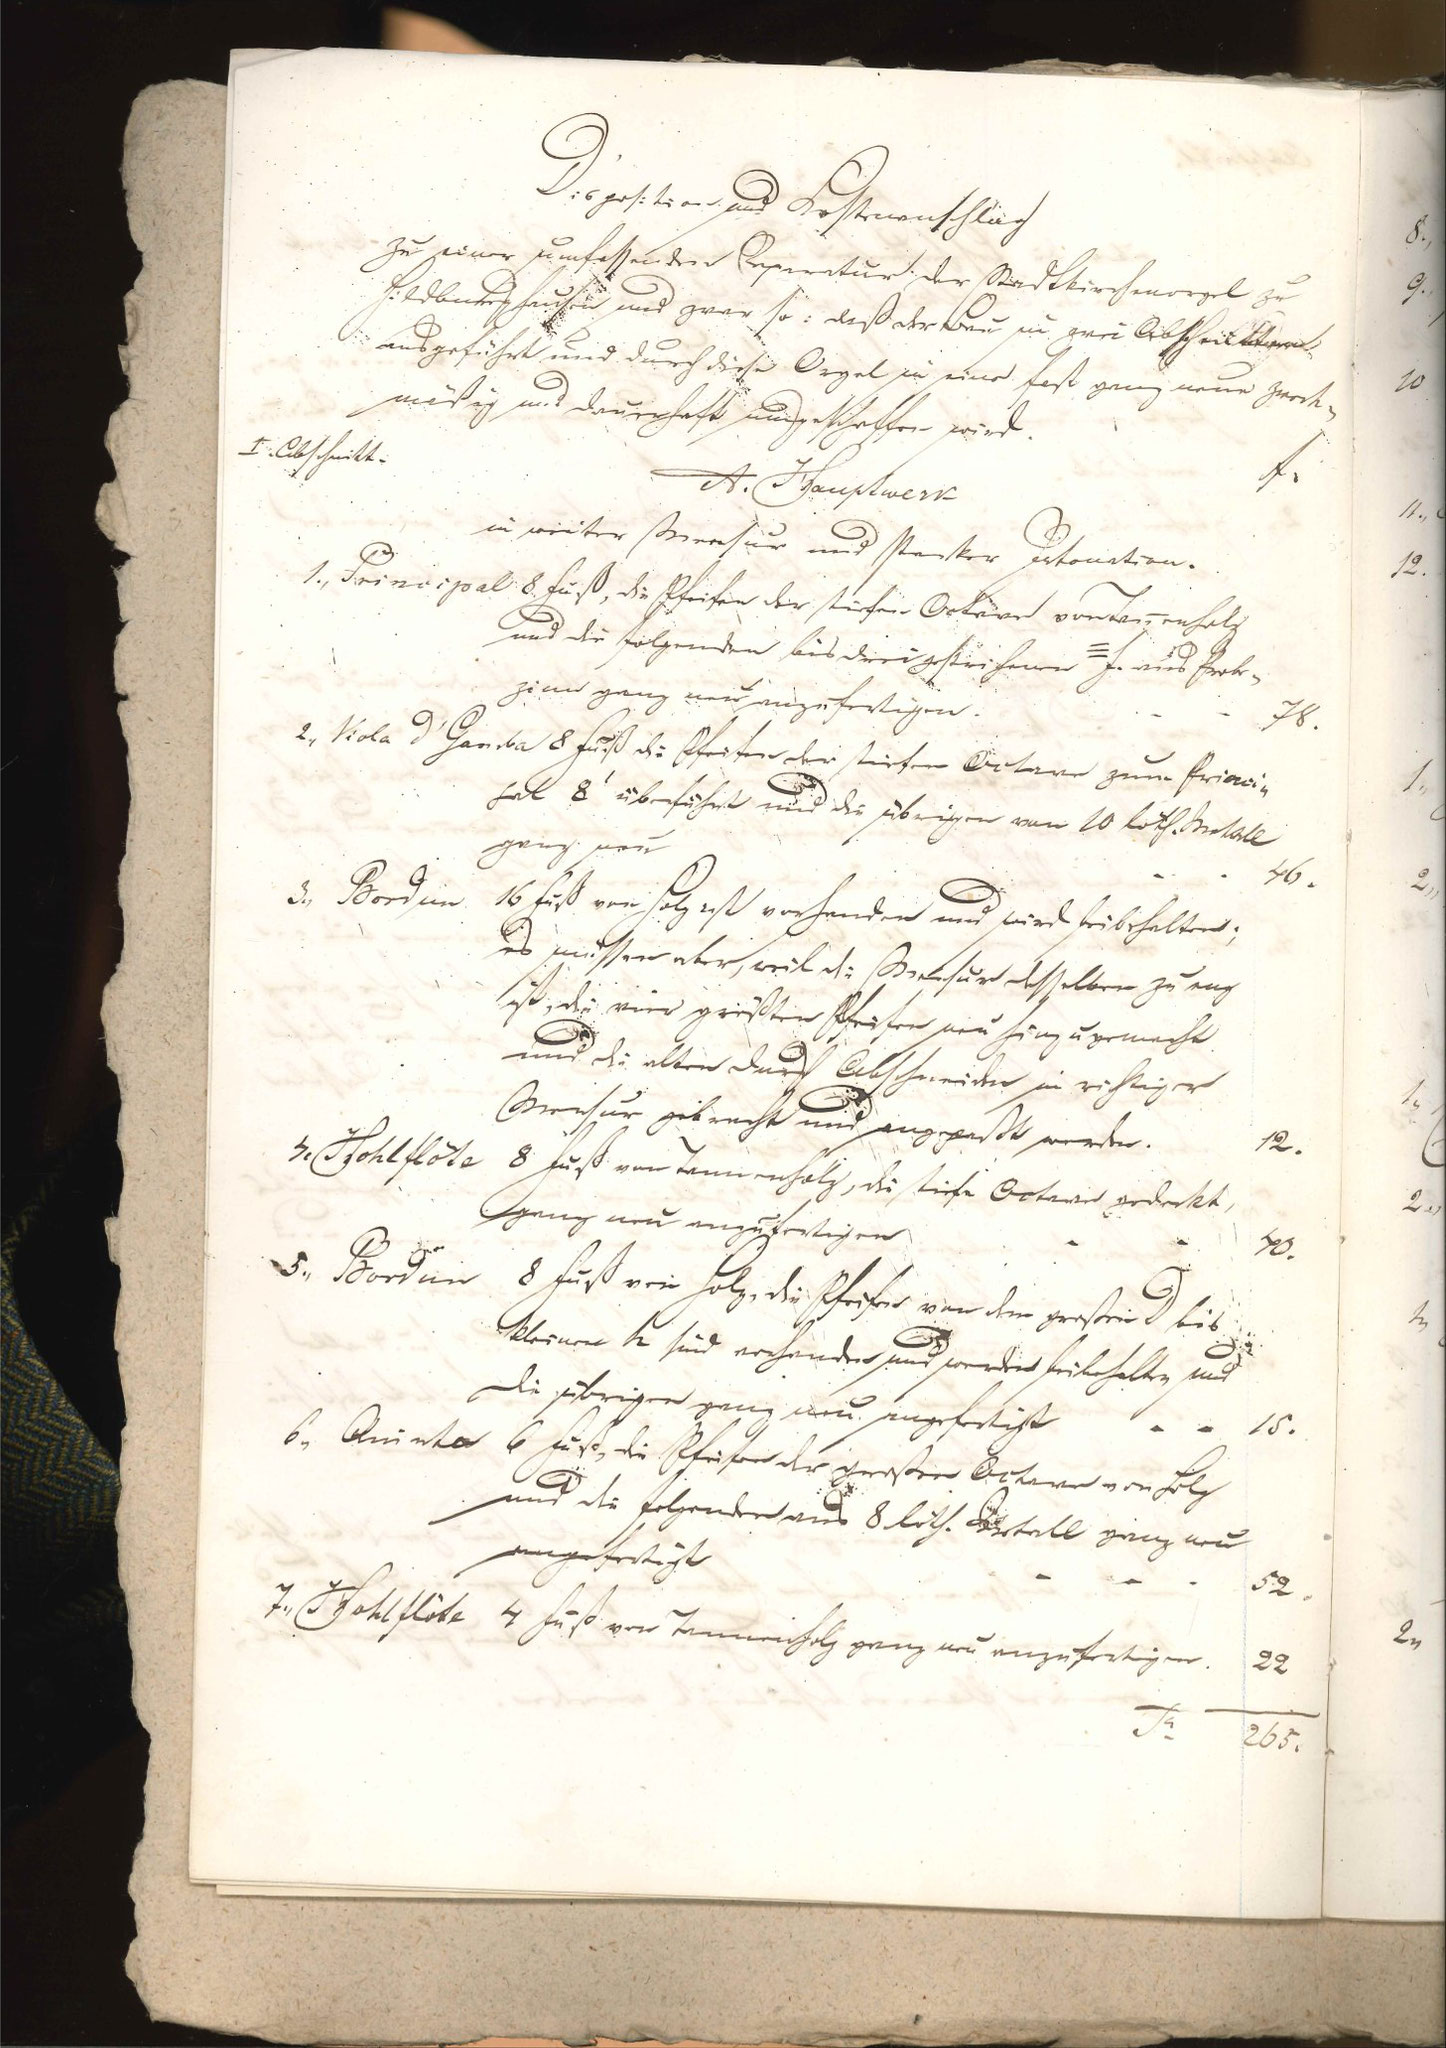 Disposition und Kostenanschlag
zu einer umfassenden Reparatur der Stadtkirchenorgel zu
Hildburghausen und zwar so: daß der Bau in zwei Abschnitten
ausgeführt und durch diese Orgel in eine fast ganz neue zweck-
mäßig und dauerhaft umgeschaffen wird.
I. Abschnitt.
A. Hauptwerk
f.
in weiter Mensur und starker Intonation.
1., Principal 8 Fuß, die Pfeifen der tiefen Octave von Tannenholz
und die folgenden bis drei gestrichenen f. aus Prob-
zinn ganz neu anzufertigen. - - 78.
2., Viola d'Gamba 8 Fuß die Pfeifen der tiefen Octave zum Princi-
pal 8' überführt und die übrigen von 10 löth. Metall
ganz neu - - 46.
3., Bordun 16 Fuß von Holz ist vorhanden und wird beibehalten;
es müssen aber, weil die Mensur desselben zu eng
ist, die vier größten Pfeifen neu hinzugemacht
und die alten durch Abschneiden in richtiger
Mensur gebracht und angepaßt werden. 12.
4. Hohlflöte 8 Fuß von Tannenholz, die tiefe Octave gedeckt,
ganz neu anzufertigen - - 40.
5., Bordun 8 Fuß von Holz, die Pfeifen von dem großen D bis
kleinen h sind vorhanden und werden beibehalten und
die übrigen ganz neu angefertigt - - 15.
6., Quinta 6 Fuß, die Pfeifen der großen Octave von Holz
und die folgenden aus 8 löth. Metall ganz neu
angefertigt - - - 52.
7., Hohlflöte 4 Fuß von Tannenholz ganz neu anzufertigen. 22
265.
8.,
9.,
10
11.,
12.
1.,
2.,
1.
2.,
2.,